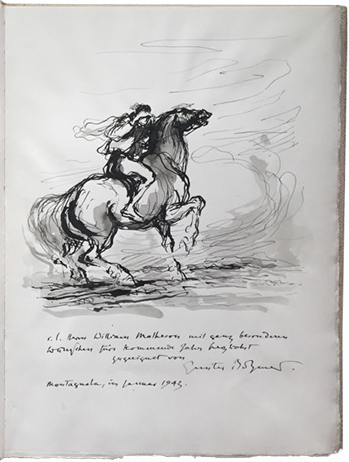 s. l. Herrn William Matheson mit ganz besonderen
Wünschen fürs kommende Jahr
zugeeignet von
Gunter Böhmer.
Montagnola, im Januar 1943.